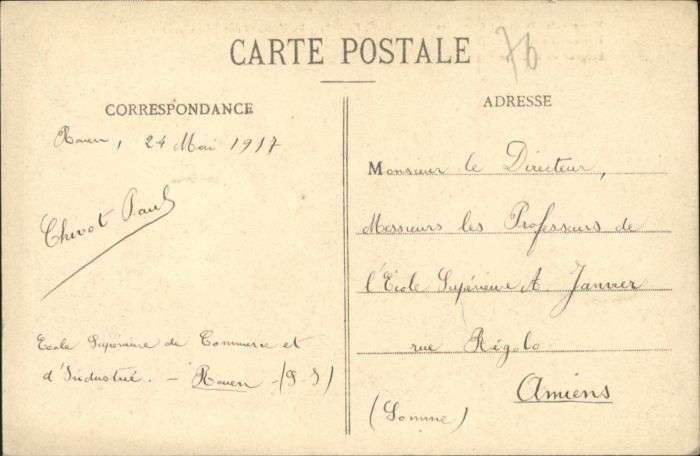 CARTE POSTALE
76
CORRESPONDANCE
Rouen, 24 Mai 1917
Chevot Paul
Ecole Supérieure de Commerce et
d'Industrie. - Rouen - (S-I)
ADRESSE
Monsieur le Directeur,
Messieurs les Professeurs de
l'Ecole Supérieure A. Janvier
rue Rigolo
Amiens
(Somme)